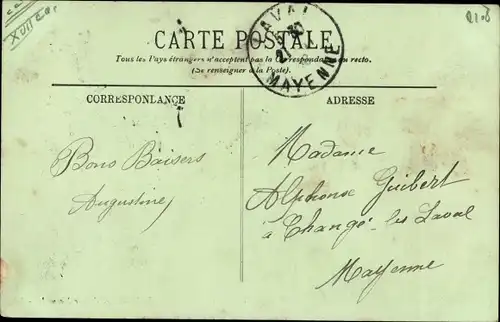 LAVAL
MAYENNE
CARTE POSTALE
Tous les Pays étrangers n'acceptent pas la Correspondance au recto.
(Se renseigner à la Poste).
CORRESPONDANCE
ADRESSE
Bons Baisers
Augustine
Madame
Alphonse Guibert
à Changé-les Laval
Mayenne